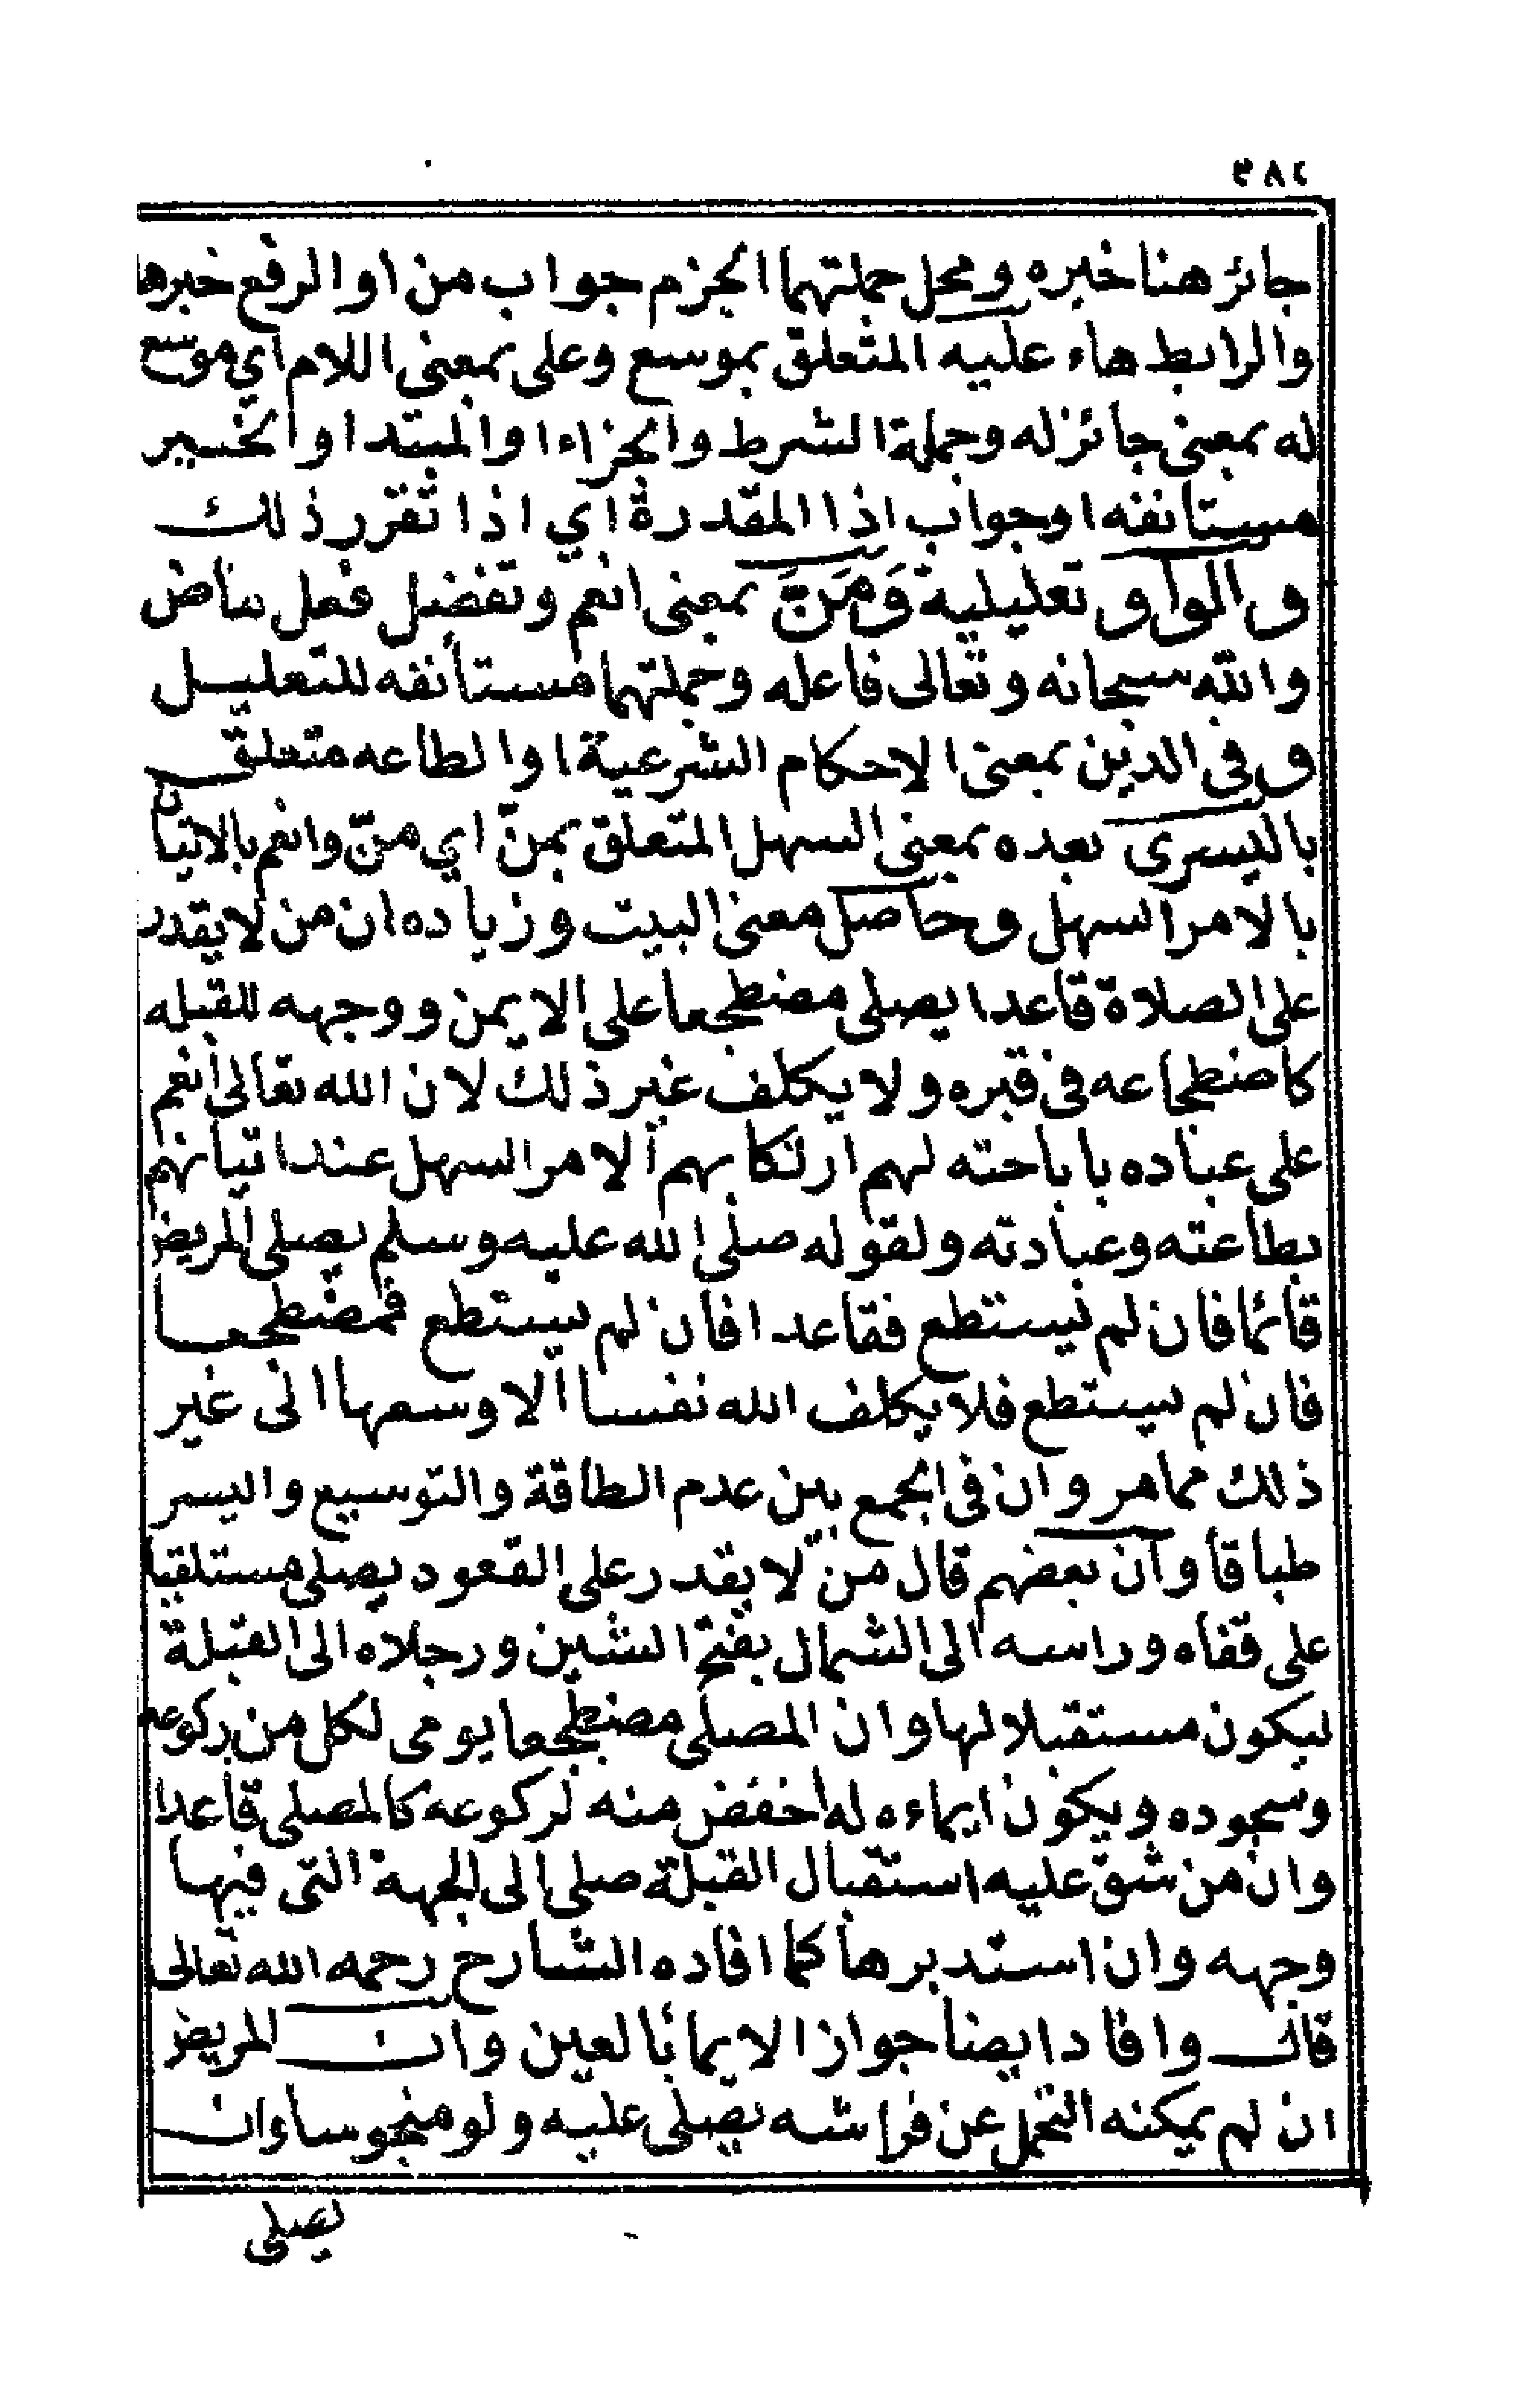 ٣٨٤
جائز هنا خبره ومحل جملتهما الجزم جواب من او الرفع خبرها
والرابط هاء عليه المتعلق بموسع وعلى بمعنى اللام اي موسع
له بمعنى جائز له وجملة الشرط والجزاء او المبتدا والخبير
مستانفه او جواب اذا المقدرة اي اذا تقرر ذلك
والواو تعليلية وَمَنَّ بمعنى انعم وتفضل فعل ماض
والله سبحانه وتعالى فاعله وجملتهما مستأنفه للتعليل
وفي الدين بمعنى الاحكام الشرعية او الطاعه متعلق
باليسرى بعده بمعنى السهل المتعلق بمنّ اي منّ وانعم بالاتيان
بالامر السهل وحاصل معنى البيت وزياده ان من لا يقدر
على الصلاة قاعدا يصلي مضطجعا على الايمن ووجهه للقبله
كاضطجاعه في قبره ولا يكلف غير ذلك لان الله تعالى أنعم
على عباده باباحته لهم ارتكابهم الامر السهل عند اتيانهم
بطاعته وعبادته ولقوله صلى الله عليه وسلم يصلي المريض
قائما فان لم يستطع فقاعدا فان لم يستطع فمضطجعا
فان لم يستطع فلا يكلف الله نفسا الا وسعها الى غير
ذلك مما مر وان في الجمع بين عدم الطاقة والتوسيع واليسر
طباقا وان بعضهم قال من لا يقدر على القعود يصلي مستلقيا
على قفاه وراسه الى الشمال بفتح الشين ورجلاه الى القبلة
ليكون مستقبلا لها وان المصلي مضطجعا يومى لكل من ركوعه
وسجوده ويكون ايماءه له اخفض منه لركوعه كالمصلي قاعدا
وان من شق عليه استقبال القبلة صلى الى الجهة التي فيها
وجهه وان استدبرها كما افاده الشارح رحمه الله تعالى
قال وافاد ايضا جواز الايماء بالعين وان المريض
ان لم يمكنه التحمل عن فراشه يصلي عليه ولو منجوسا وان
يصلي